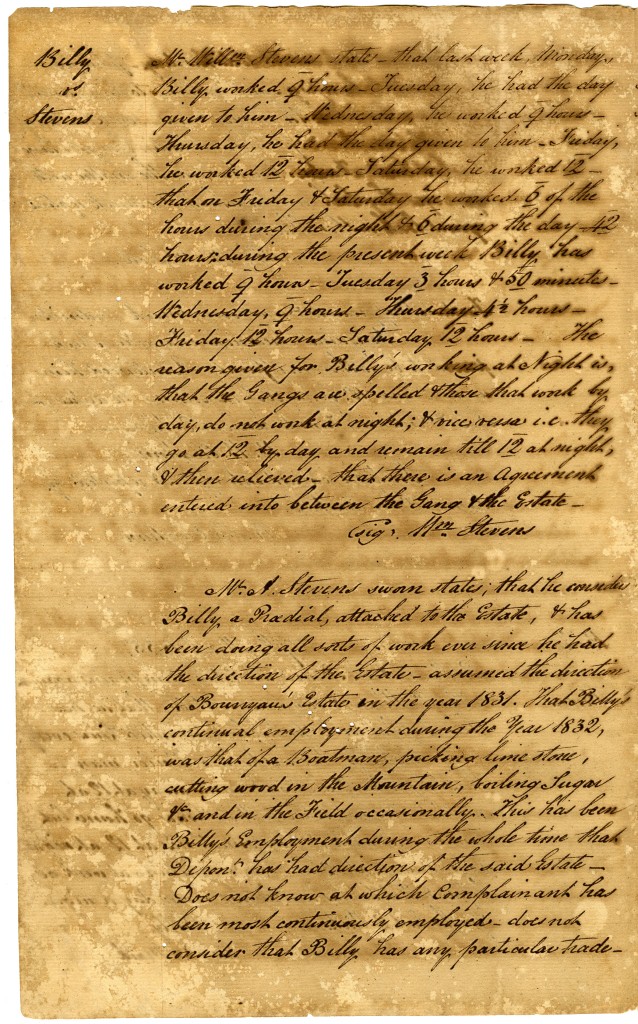 Billy
vs
Stevens
Mr. Willm. Stevens states – that last week, Monday,
Billy worked 9 hours – Tuesday, he had the day
given to him – Wednesday, he worked 9 hours –
Thursday, he had the day given to him – Friday,
he worked 12 hours – Saturday, he worked 12 –
that on Friday & Saturday he worked 6 of the
hours during the night & 6 during the day – 42
hours – during the present week Billy has
worked 9 hours – Tuesday 3 hours & 50 minutes –
Wednesday, 9 hours – Thursday 4½ hours –
Friday 12 hours – Saturday 12 hours – The
reason given for Billy's working at Night is,
that the Gangs are spelled & those that work by
day, do not work at night; & vice versa i.e. they
go at 12 by day and remain till 12 at night,
& then relieved – that there is an Agreement
entered into between the Gang & the Estate –
sig. Wm. Stevens
Mr. A. Stevens sworn states; that he considers
Billy, a Prædial, attached to the Estate, & has
been doing all sorts of work ever since he had
the direction of the Estate – assumed the direction
of Estate in the year 1831. That Billy's
continual employment during the Year 1832,
was that of a Boatman, picking lime stone,
cutting wood in the Mountain, boiling Sugar
&c. and in the Field occasionally. This has been
Billy's Employment during the whole time that
Depont. has had direction of the said Estate –
Does not know at which Complainant has
been most continuously employed – does not
consider that Billy has any particular trade –